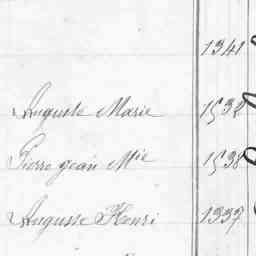 1341
Auguste Marie 1532
Pierre jean Mie 1538
Auguste Henri 1337